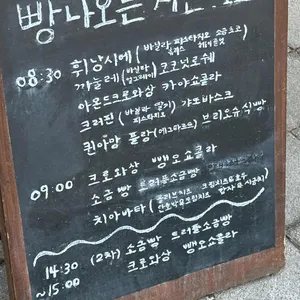 빵 나오는 시간
08:30 휘낭시에 (바닐라 피스타치오 소금
까눌레 (바닐라 얼그레이) 코코넛로쉐
아몬드크로와상 카야쇼콜라
크러핀 (바닐라 딸기 피스타치오) 갸또바스크
퀸아망 플랑 (에그타르트) 브리오슈식빵
09:00 크로와상 뺑오쇼콜라
소금빵 트러플소금빵
치아바타 (올리브치즈
14:30 (2차) 소금빵 트러플소금빵
~15:00 크로와상 뺑오쇼콜라